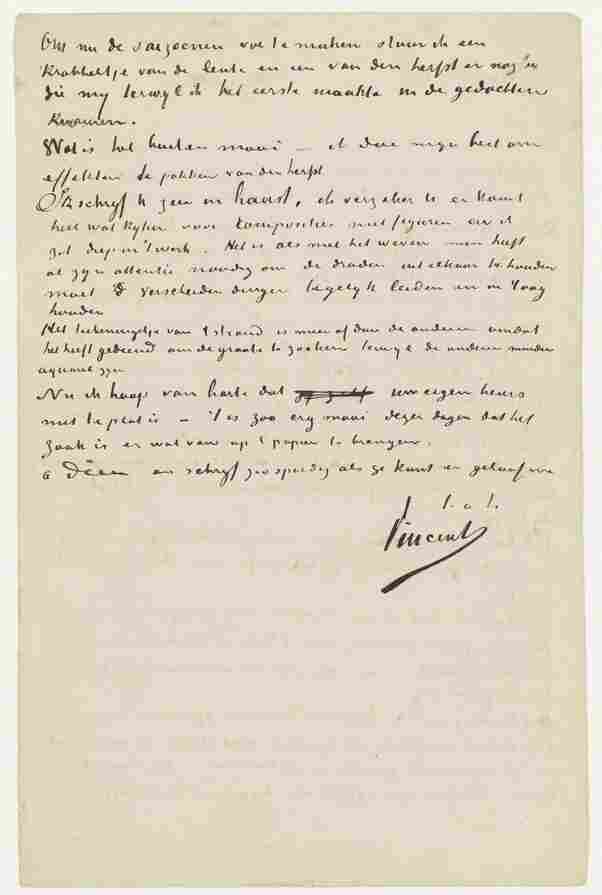 Om nu de saizoenen vol te maken stuur ik een
krabbeltje van de lente en een van den herfst er nog in
die my terwyl ik het eerste maakte in de gedachten
kwamen.
Wat is het buiten mooi — ik
effekten te pakken van den herfst
Ik schryf U zeer in haast, ik verzeker U er komt
heel wat kyken voor composities met figuren en ik
zit diep in 't werk. Het is als met het weven men heeft
al zyn attentie noodig om de draden uit elkaar te houden
moet verscheiden dingen tegelyk leiden en in 't oog
houden
Het teekeningetje van 't strand is meer af dan de anderen omdat
het heeft gediend om de groote te zoeken terwyl de anderen minder
aquarel zyn
Nu ik hoop van harte dat uw eigen keus
niet te plat is — 't is zoo erg mooi dezer dagen dat het
zaak is er wat van op 't papier te brengen.
à Dieu en schryf zoo spoedig als ge kunt en geloof me
t. à t.
Vincent